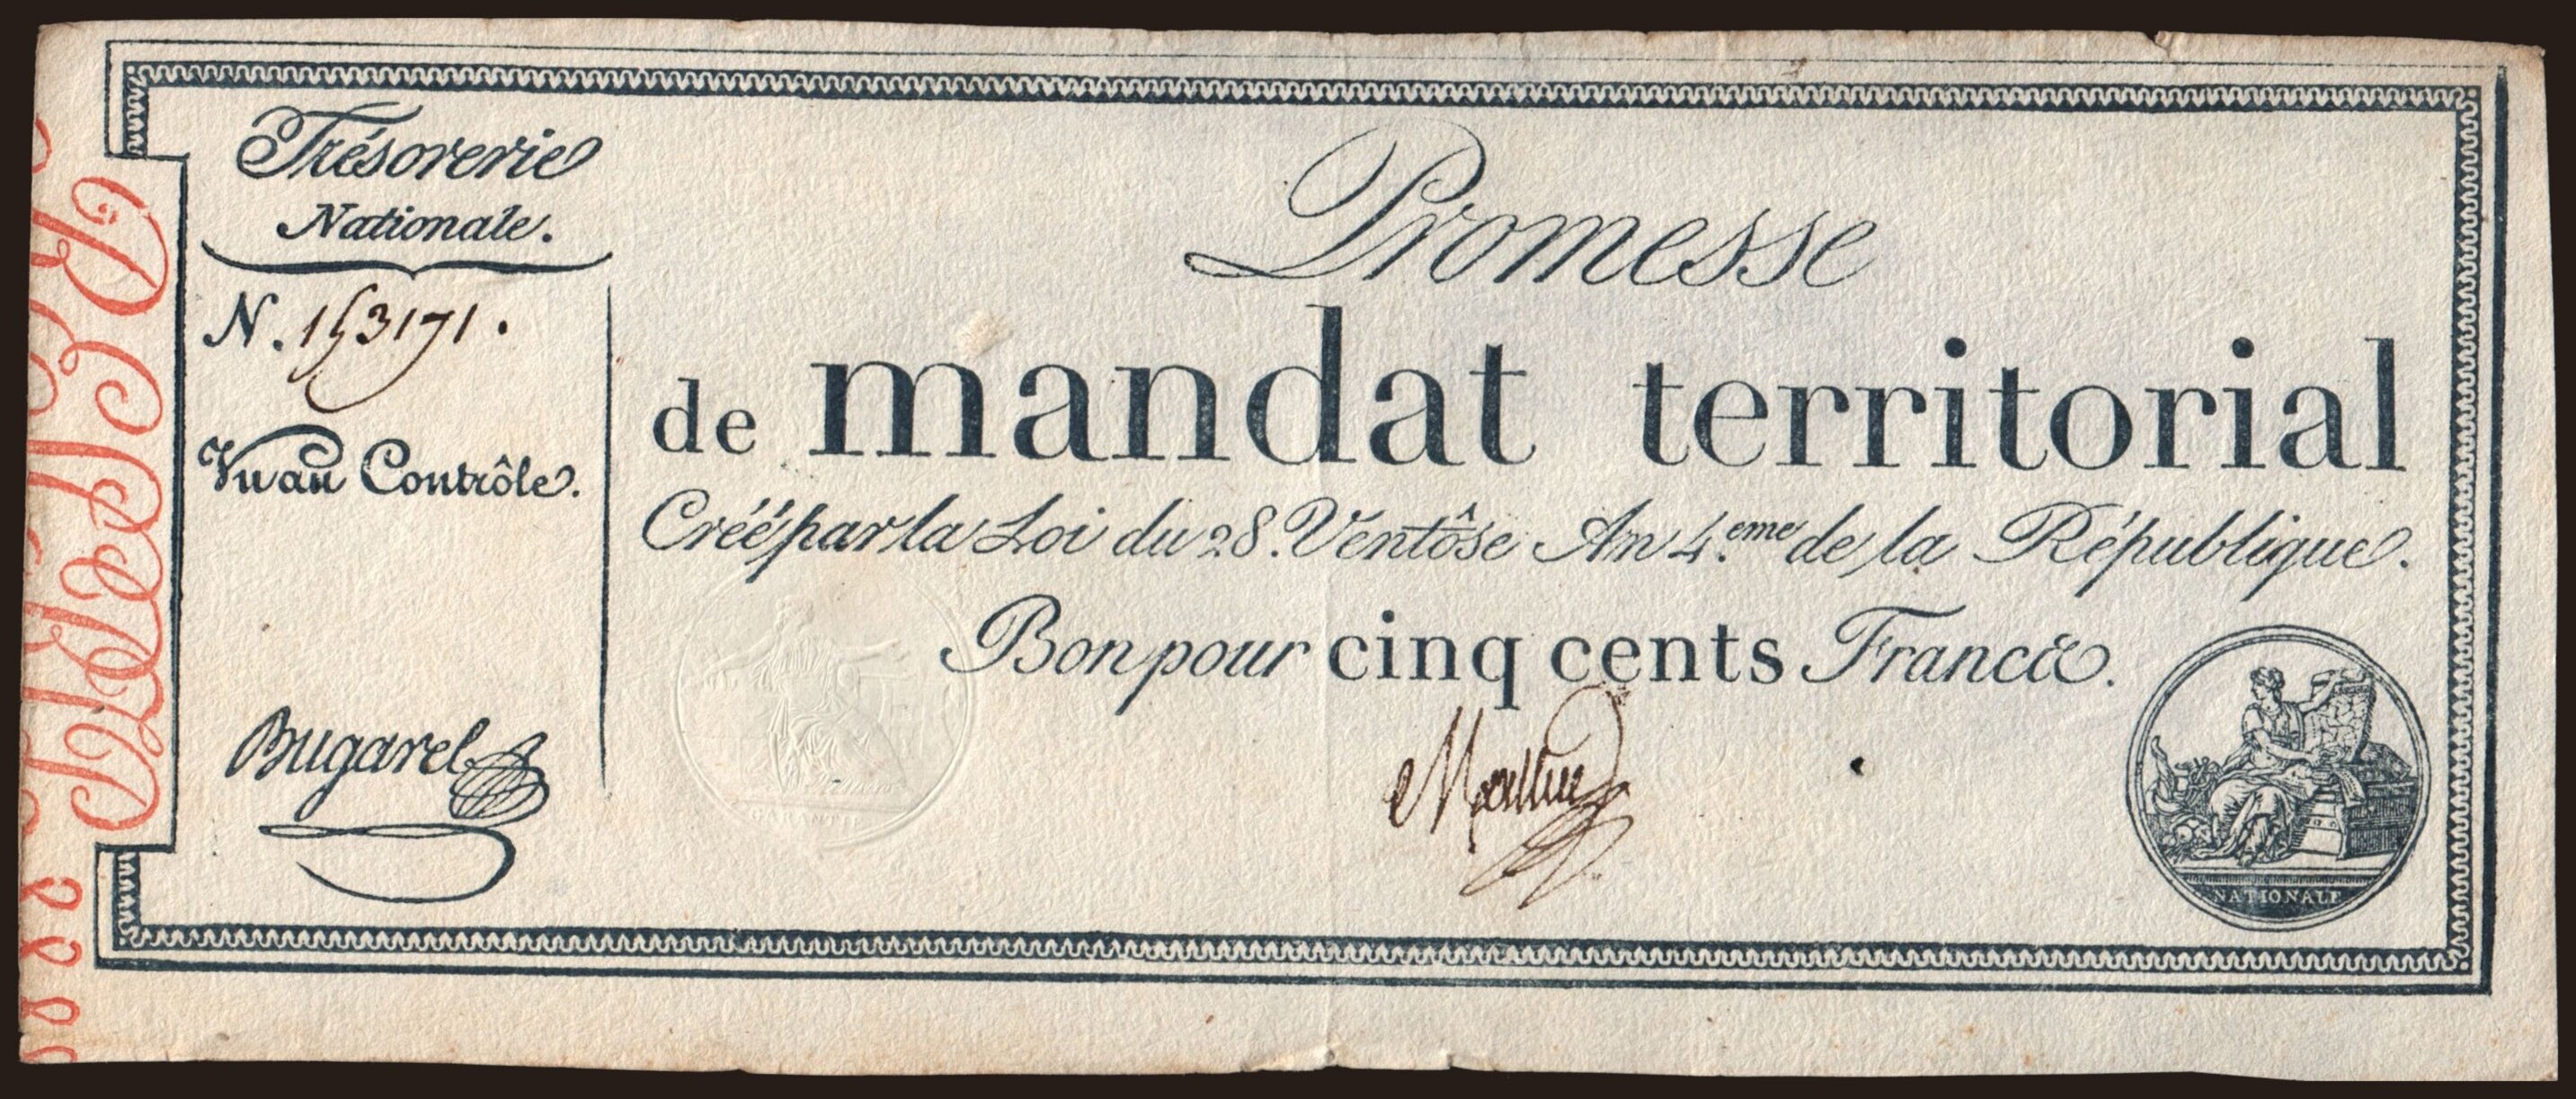 Trésorerie
Nationale.
N. 153171.
Vu au Contrôle.
Bugarel
Promesse
de mandat territorial
Créé par la Loi du 28. Ventôse An 4.eme de la République.
Bon pour cinq cents Francs.
GARANTIE
NATIONALE